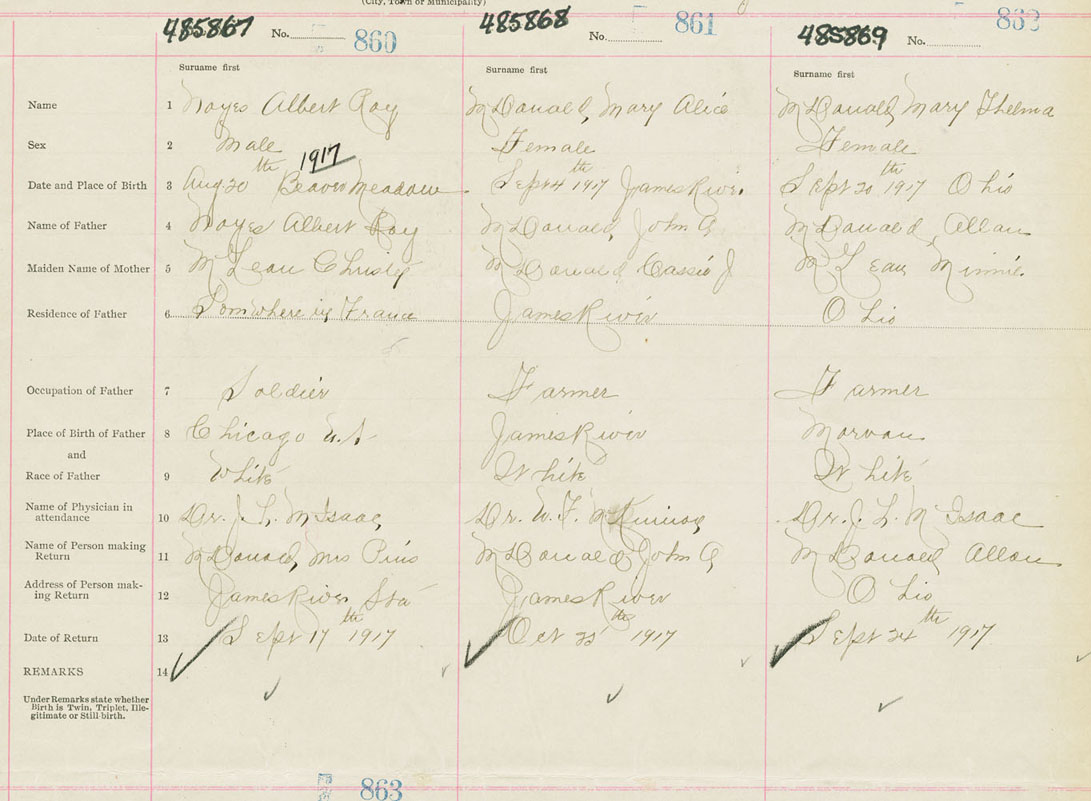 (City, Town or Municipality)
485867 No. 860 485868 No. 861 485869 No. 862
Surname first Surname first Surname first
Name 1 Noyes Albert Roy McDonald, Mary Alice McDonald, Mary Thelma
Sex 2 Male Female Female
1917
Date and Place of Birth 3 Aug 20th Beaver Meadow Sept 4th 1917 James River Sept 20th 1917 Ohio
Name of Father 4 Noyes Albert Roy McDonald, John A McDonald, Allan
Maiden Name of Mother 5 McLean Christy McDonald Cassie J McLean Minnie
Residence of Father 6 Somwhere in France James River Ohio
Occupation of Father 7 Soldier Farmer Farmer
Place of Birth of Father 8 Chicago U.S James River Morvan
and
Race of Father 9 White White White
Name of Physician in
attendance 10 Dr. J. L. McIsaac Dr. W. F. McKinnon Dr. J. L. McIsaac
Name of Person making
Return 11 McDonald, Mrs Pius McDonald John A McDonald Allan
Address of Person mak-
ing Return 12 James River Sta James River Ohio
Date of Return 13 Sept 17th 1917 Oct 25th 1917 Sept 24th 1917
REMARKS 14
Under Remarks state whether
Birth is Twin, Triplet, Ille-
gitimate or Still-birth.
863